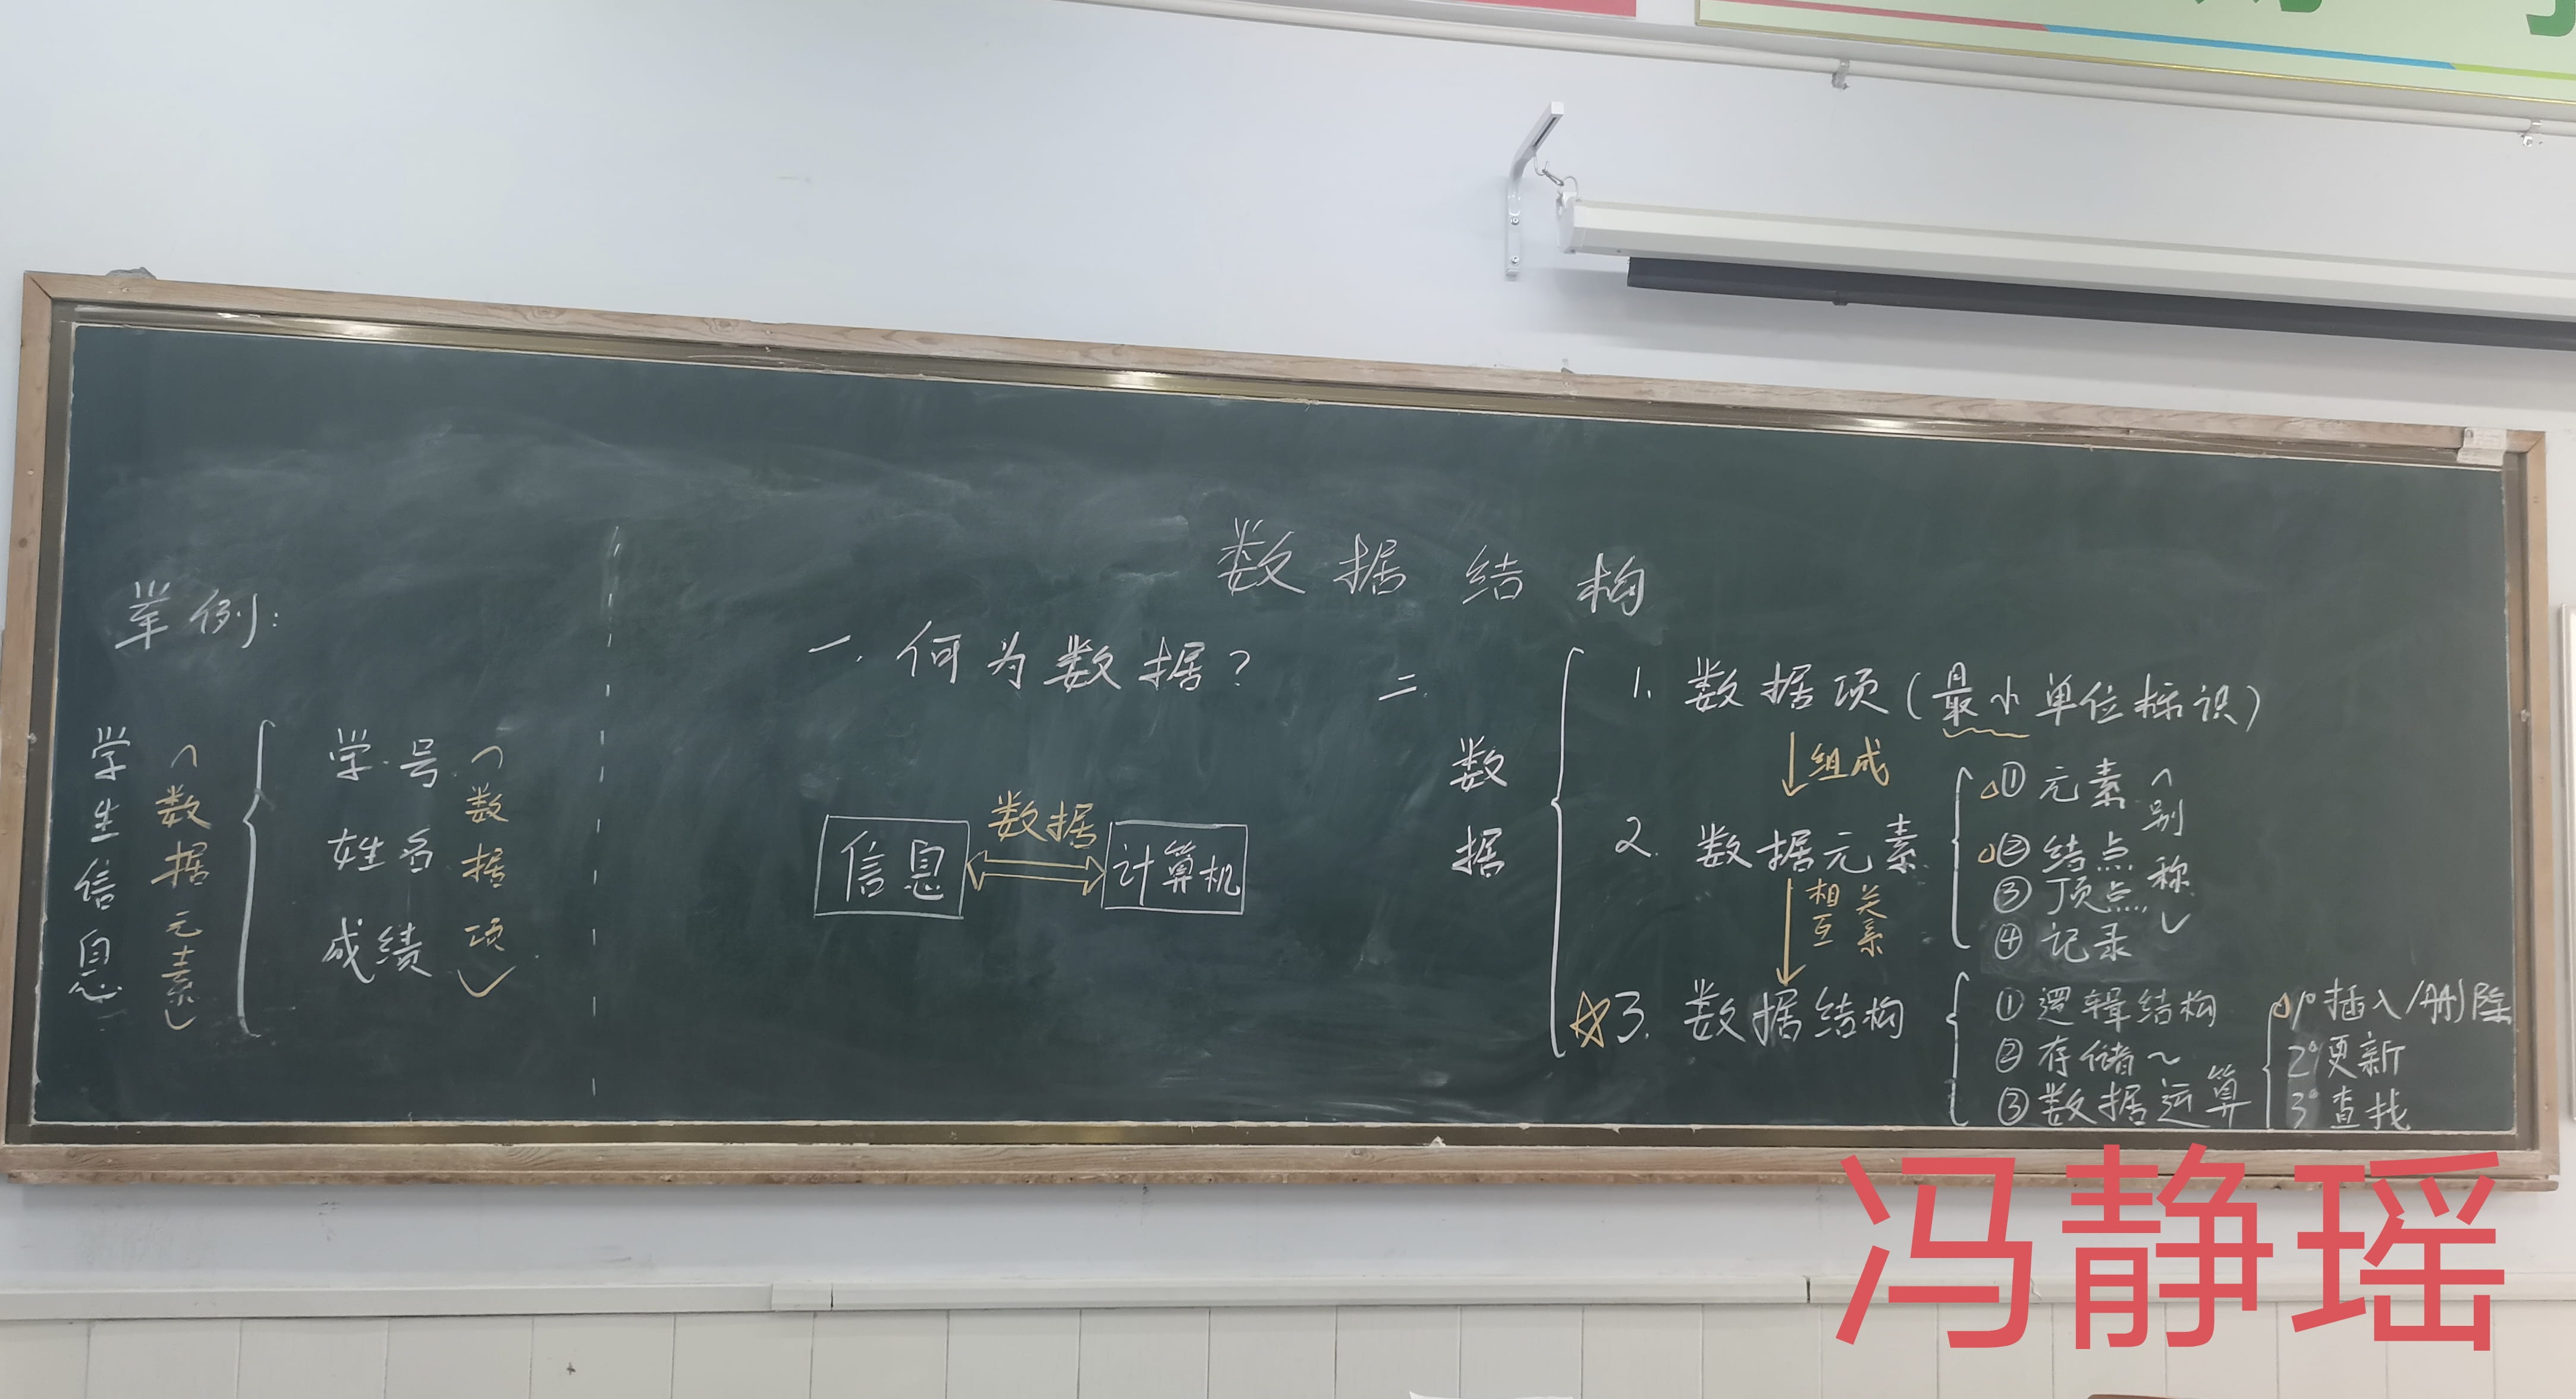 数据结构
举例:
学生信息
(数据元素)
学号
姓名
成绩
(数据项)
一. 何为数据?
信息
数据
计算机
二.
数据
1. 数据项(最小单位标识)
组成
2. 数据元素
①元素
②结点
③顶点
④记录
(别称)
相互关系
3. 数据结构
①逻辑结构
②存储~
③数据运算
1°插入/删除
2°更新
3°查找
冯静瑶